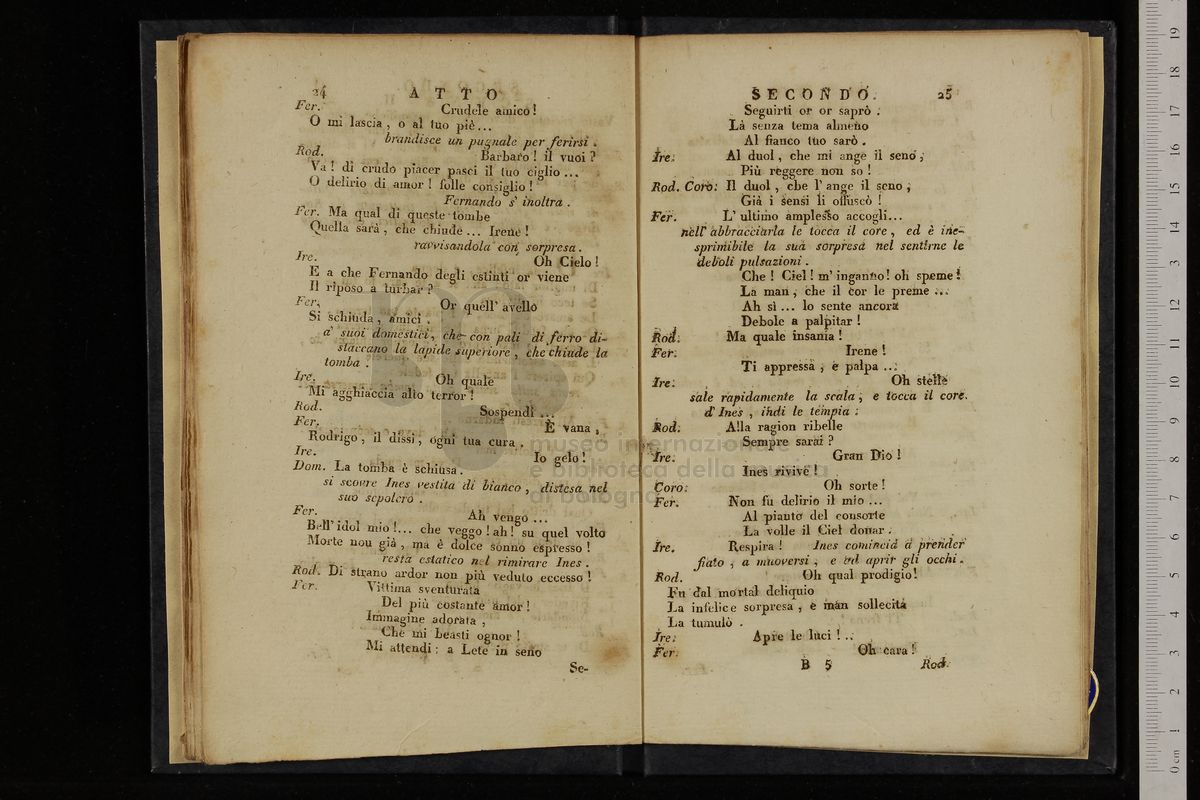 24 ATTO
Fer. Crudele amico!
O mi lascia, o al tuo piè...
brandisce un pugnale per ferirsi.
Rod. Barbaro! il vuoi?
Va! di crudo piacer pasci il tuo ciglio...
O delirio di amor! folle consiglio!
Fernando s' inoltra.
Fer. Ma qual di queste tombe
Quella sarà, che chiude... Irene!
ravvisandola con sorpresa.
Ire. Oh Cielo!
E a che Fernando degli estinti or viene
Il riposo a turbar?
Fer. Or quell' avello
Si schiuda, amici.
a' suoi domestici, che con pali di ferro di-
staccano la lapide superiore, che chiude la
tomba.
Ire. Oh quale
Mi agghiaccia alto terror!
Rod. Sospendi...
Fer. È vana,
Rodrigo, il dissi, ogni tua cura.
Ire. Io gelo!
Dom. La tomba è schiusa.
si scopre Ines vestita di bianco, distesa nel
suo sepolcro.
Fer. Ah vengo...
Bell' idol mio!... che veggo! ah! su quel volto
Morte nou già, ma è dolce sonno espresso!
resta estatico nel rimirare Ines.
Rod. Di strano ardor non più veduto eccesso!
Fer. Vittima sventurata
Del più costante amor!
Immagine adorata,
Che mi beasti ognor!
Mi attendi: a Lete in seno
Se-
SECONDO. 25
Seguirti or or saprò:
Là senza tema almeno
Al fianco tuo sarò.
Ire. Al duol, che mi ange il seno,
Più reggere non so!
Rod. Coro: Il duol, che l' ange il seno,
Già i sensi li offuscò!
Fer. L' ultimo amplesso accogli...
nell' abbracciarla le tocca il core, ed è ine-
sprimibile la sua sorpresa nel sentirne le
deboli pulsazioni.
Che! Ciel! m' inganno! oh speme!
La man, che il cor le preme...
Ah sì... lo sente ancora
Debole a palpitar!
Rod. Ma quale insania!
Fer. Irene!
Ti appressa, e palpa...
Ire. Oh stelle
sale rapidamente la scala, e tocca il core.
d' Ines, indi le tempia:
Rod. Alla ragion ribelle
Sempre sarai?
Ire. Gran Dio!
Ines rivive!
Coro: Oh sorte!
Fer. Non fu delirio il mio...
Al pianto del consorte
La volle il Ciel donar.
Ire. Respira! Ines comincia a prender
fiato, a muoversi, e ad aprir gli occhi.
Rod. Oh qual prodigio!
Fu dal mortal deliquio
La infelice sorpresa, e man sollecita
La tumulò.
Ire: Apre le luci!..
Fer. Oh cara!
B 5 Rod.
museo internazionale
e biblioteca della musica
di bologna